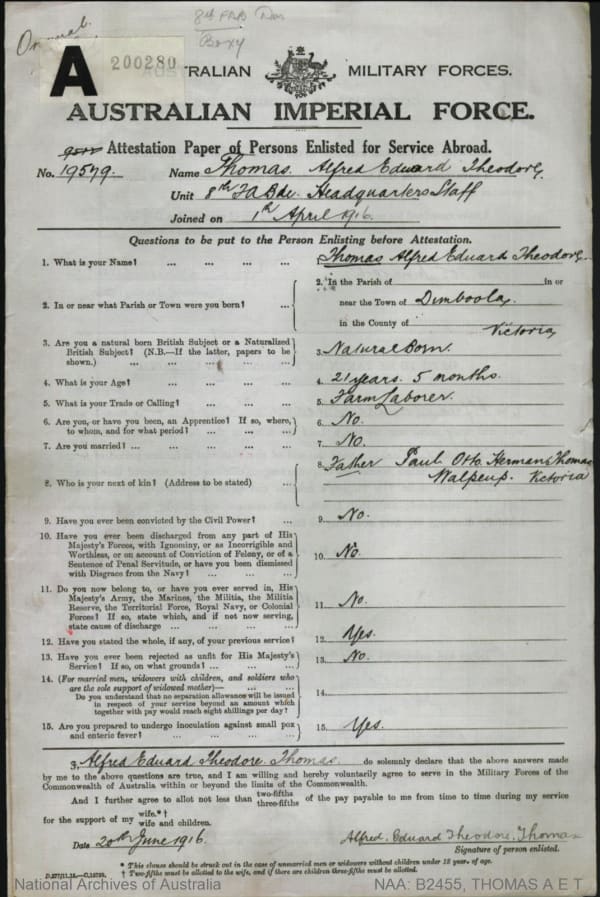 8th FAB
A
200280
AUSTRALIAN MILITARY FORCES.
AUSTRALIAN IMPERIAL FORCE.
Attestation Paper of Persons Enlisted for Service Abroad.
No. 19579. Name Thomas. Alfred Eduard Theodore.
Unit 8th FA Bde. Headquarters Staff
Joined on 1st April 1916.
Questions to be put to the Person Enlisting before Attestation.
1. What is your Name? ... ... ... ... 1. Thomas Alfred Eduard Theodore
2. In or near what Parish or Town were you born? ... 2. In the Parish of in or
near the Town of Dimboola,
in the County of Victoria
3. Are you a natural born British Subject or a Naturalized
British Subject? (N.B.—If the latter, papers to be
shown.) ... ... ... ... 3. Natural Born.
4. What is your Age? ... ... ... ... 4. 21 years. 5 months.
5. What is your Trade or Calling? ... ... ... 5. Farm Laborer.
6. Are you, or have you been, an Apprentice? If so, where,
to whom, and for what period? ... ... ... 6. No.
7. Are you married? ... ... ... ... ... 7. No.
8. Who is your next of kin? (Address to be stated) ... 8. Father Paul Otto Herman Thomas
Walpeup. Victoria
9. Have you ever been convicted by the Civil Power? ... 9. No.
10. Have you ever been discharged from any part of His
Majesty's Forces, with Ignominy, or as Incorrigible and
Worthless, or on account of Conviction of Felony, or of a
Sentence of Penal Servitude, or have you been dismissed
with Disgrace from the Navy? ... ... ... 10. No.
11. Do you now belong to, or have you ever served in, His
Majesty's Army, the Marines, the Militia, the Militia
Reserve, the Territorial Force, Royal Navy, or Colonial
Forces? If so, state which, and if not now serving,
state cause of discharge ... ... ... ... 11. No.
12. Have you stated the whole, if any, of your previous service? 12. Yes.
13. Have you ever been rejected as unfit for His Majesty's
Service? If so, on what grounds? ... ... ... 13. No.
14. (For married men, widowers with children, and soldiers who
are the sole support of widowed mother)— ... ...
Do you understand that no separation allowance will be issued
in respect of your service beyond an amount which
together with pay would reach eight shillings per day? 14.
15. Are you prepared to undergo inoculation against small pox
and enteric fever? ... ... ... ... 15. Yes.
I, Alfred Eduard Theodore Thomas. do solemnly declare that the above answers made
by me to the above questions are true, and I am willing and hereby voluntarily agree to serve in the Military Forces of the
Commonwealth of Australia within or beyond the limits of the Commonwealth.
And I further agree to allot not less than two-fifths three-fifths of the pay payable to me from time to time during my service
for the support of my wife.*† wife and children.
Date 20th June 1916. Alfred. Eduard Theodore. Thomas
Signature of person enlisted.
* This clause should be struck out in the case of unmarried men or widowers without children under 18 year. of age.
† Two-fifths must be allotted to the wife, and if there are children three-fifths must be allotted.
National Archives of Australia NAA: B2455, THOMAS A E T